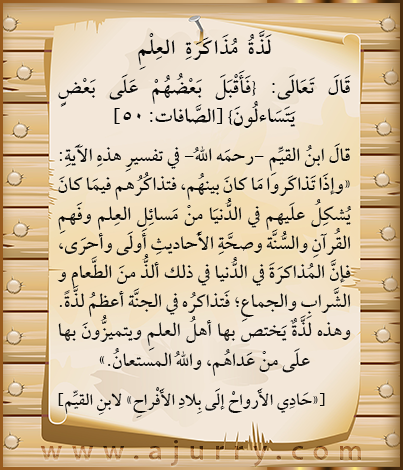 لَذَّةُ مُذَاكَرَةِ العِلْمِ
قَالَ تَعَالَى: {فَأَقْبَلَ بَعْضُهُمْ عَلَى بَعْضٍ
يَتَسَاءلُونَ} [الصَّافات: ٥٠]
قالَ ابنُ القيِّم –رحمَه اللهُ– في تفسيرِ هذهِ الآيَةِ:
«وإذَا تَذاكَروا مَا كانَ بينهُم، فتذاكُرُهم فيمَا كانَ
يُشكِلُ علَيهم في الدُّنيَا مِنْ مَسائلِ العِلم وفَهمِ
القُرآنِ والسُّنَّة وصحَّةِ الأَحاديثِ أَولَى وأحرَى،
فإنَّ المُذاكرَةَ في الدُّنيا في ذلك ألذُّ منَ الطَّعامِ و
الشَّرابِ والجماعِ؛ فَتذاكرُه في الجنَّة أعظمُ لذَّةً.
وهذه لذَّةٌ يَختصُ بها أهلُ العلمِ ويتميزُّونَ بها
علَى مِنْ عَداهُم، واللهُ المستعانُ.»
[«حَادِي الأَرواحْ إلَى بِلادِ الأَفْراحِ» لابنِ القيِّم]
www.ajurry.com